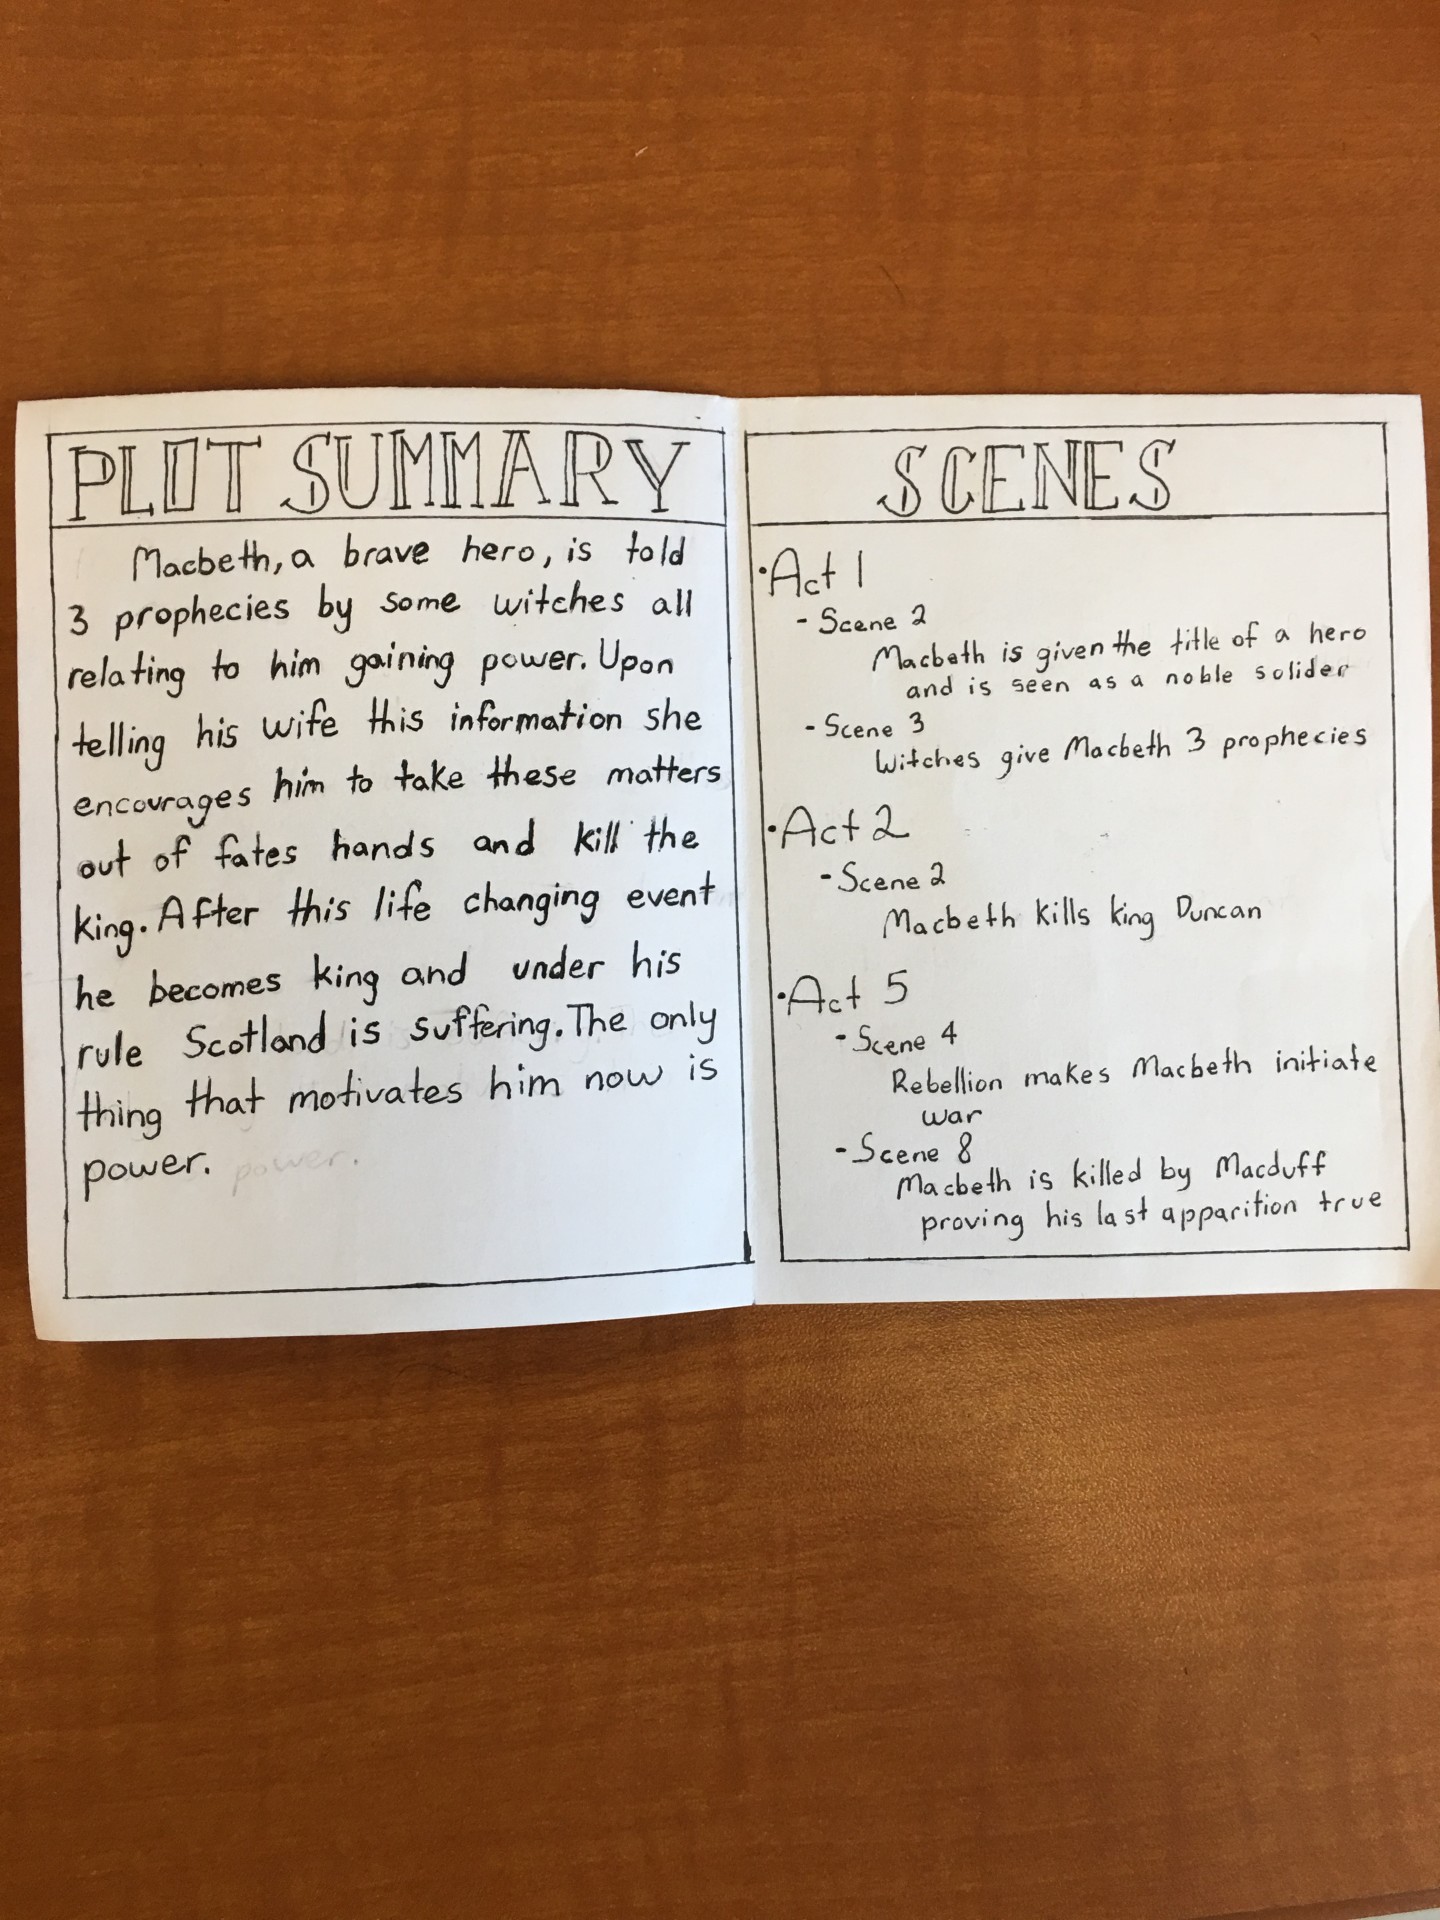 PLOT SUMMARY
Macbeth, a brave hero, is told
3 prophecies by some witches all
relating to him gaining power. Upon
telling his wife this information she
encourages him to take these matters
out of fates hands and kill the
king. After this life changing event
he becomes king and under his
rule Scotland is suffering. The only
thing that motivates him now is
power. power.
SCENES
•Act 1
- Scene 2
Macbeth is given the title of a hero
and is seen as a noble solider
- Scene 3
Witches give Macbeth 3 prophecies
•Act 2
- Scene 2
Macbeth kills king Duncan
•Act 5
- Scene 4
Rebellion makes Macbeth initiate
war
- Scene 8
Macbeth is killed by Macduff
proving his last apparition true